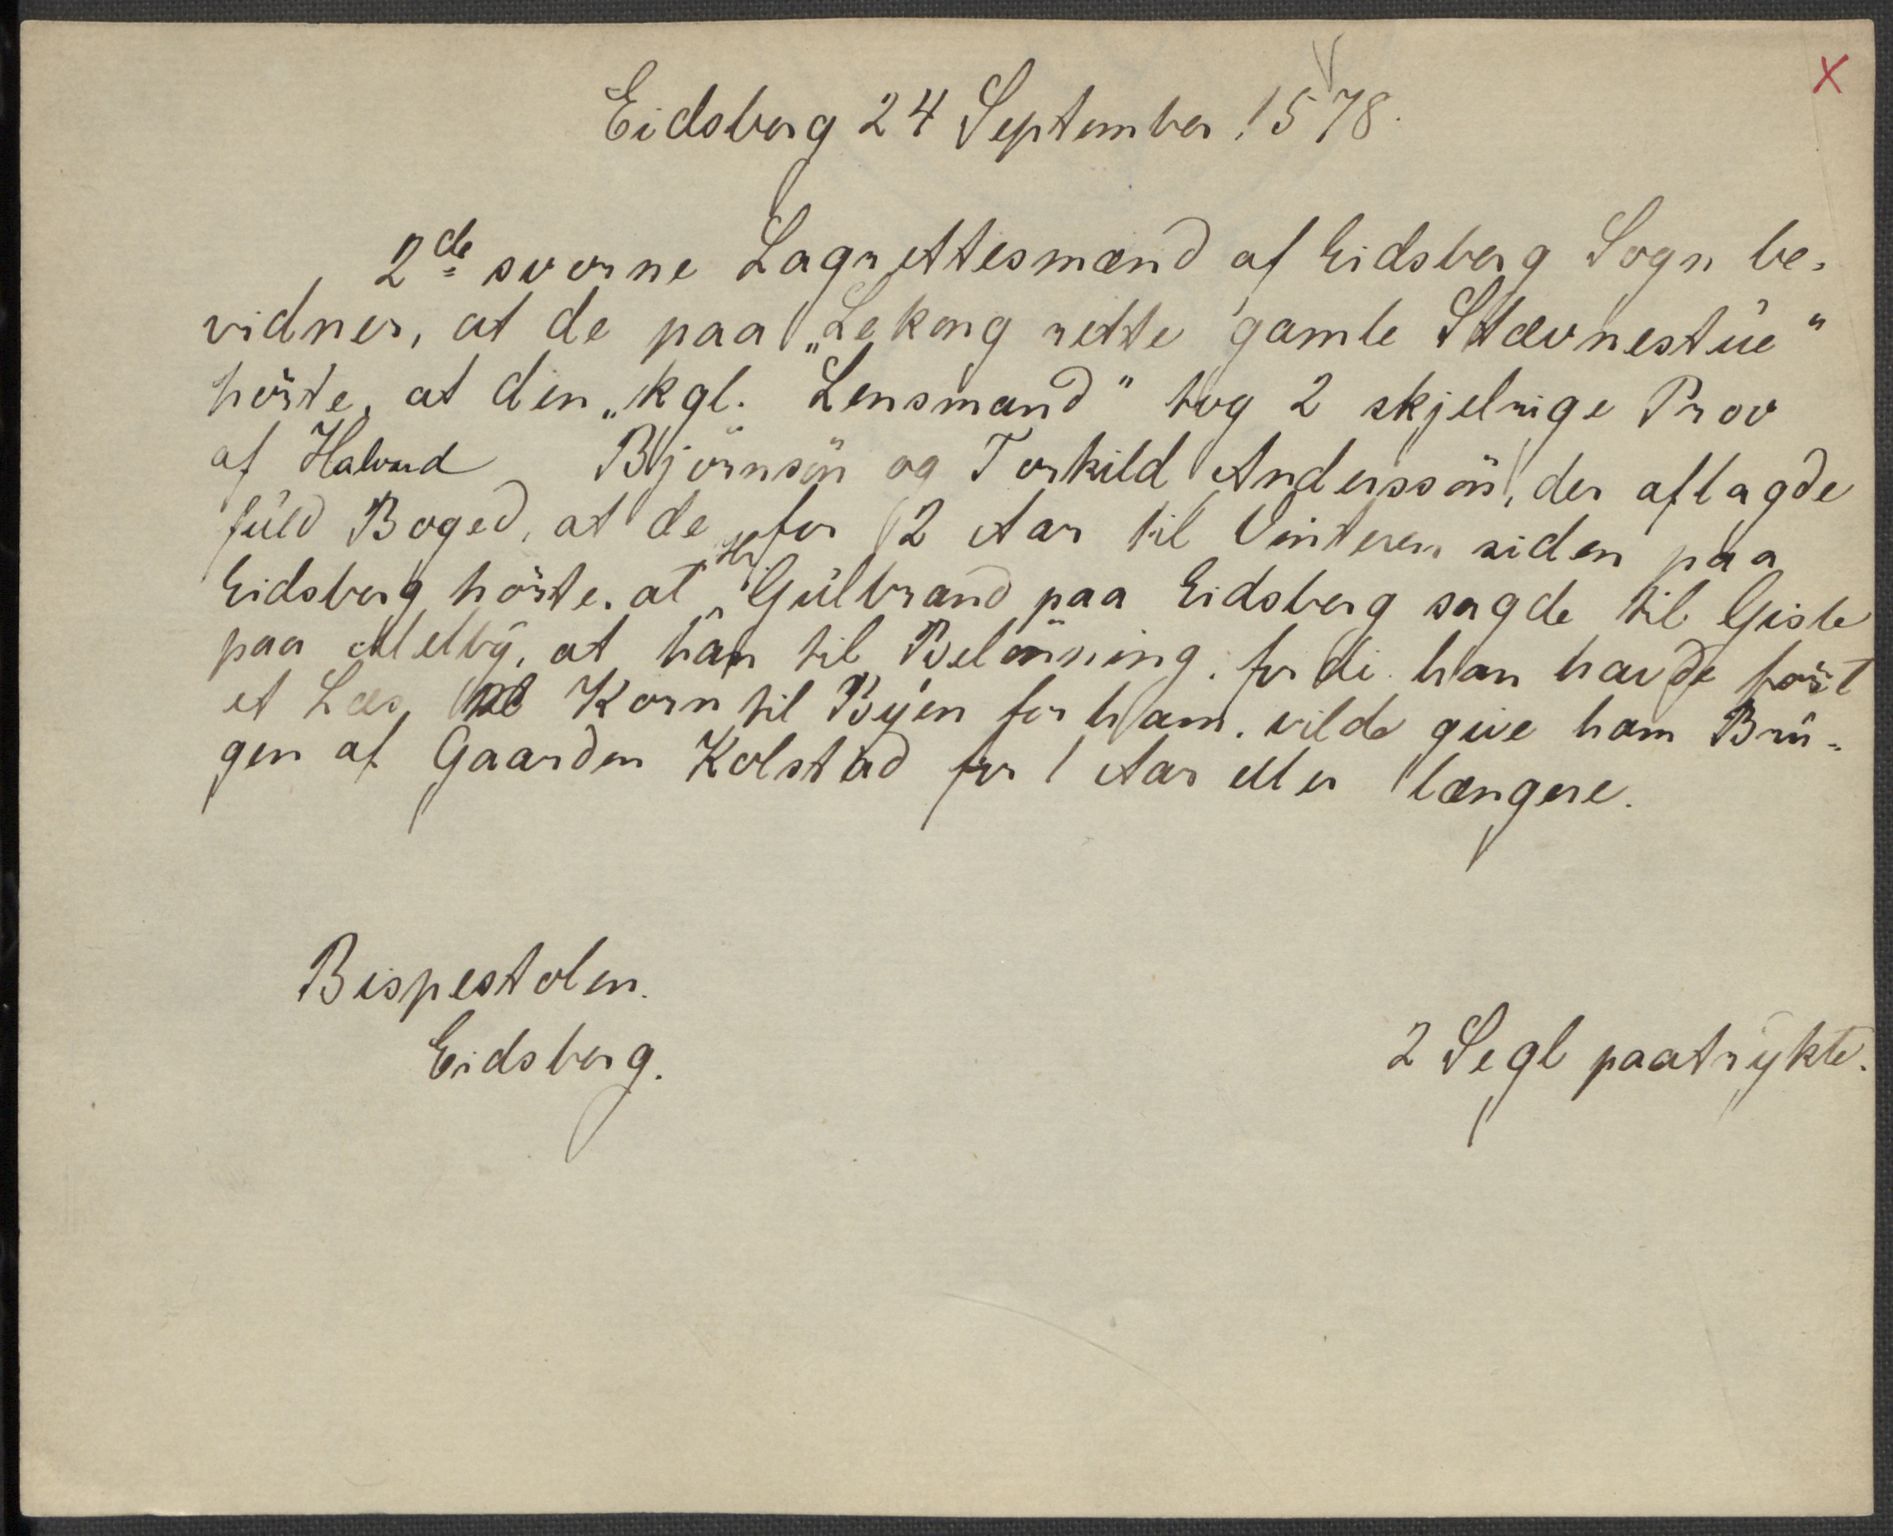 Eidsberg 24 September 1578.
X
2de svorne Lagrettesmænd af Eidsberg Sogn be-
vidner, at de paa „Lekeng rette gamle Stævnestüe“
hörte, at den „kgl. Lensmand“ tog 2 skjelrige Prov
af Halvard Björnsön og Torkild Anderssön, der aflagde
füld Boged, at de for 2 Aar til Vinteren siden paa
Eidsberg hörte, at Hr Gülbrand paa Eidsberg sagde til Gisle
paa Melbÿ, at han til Belönning, fordi han havde fört
et Læs Korn til Byen for ham, vilde give ham Brü-
gen af Gaarden Kolstad for 1 Aar eller længere.
Bispestolen.
Eidsberg.
2 Segl paatrÿkte.